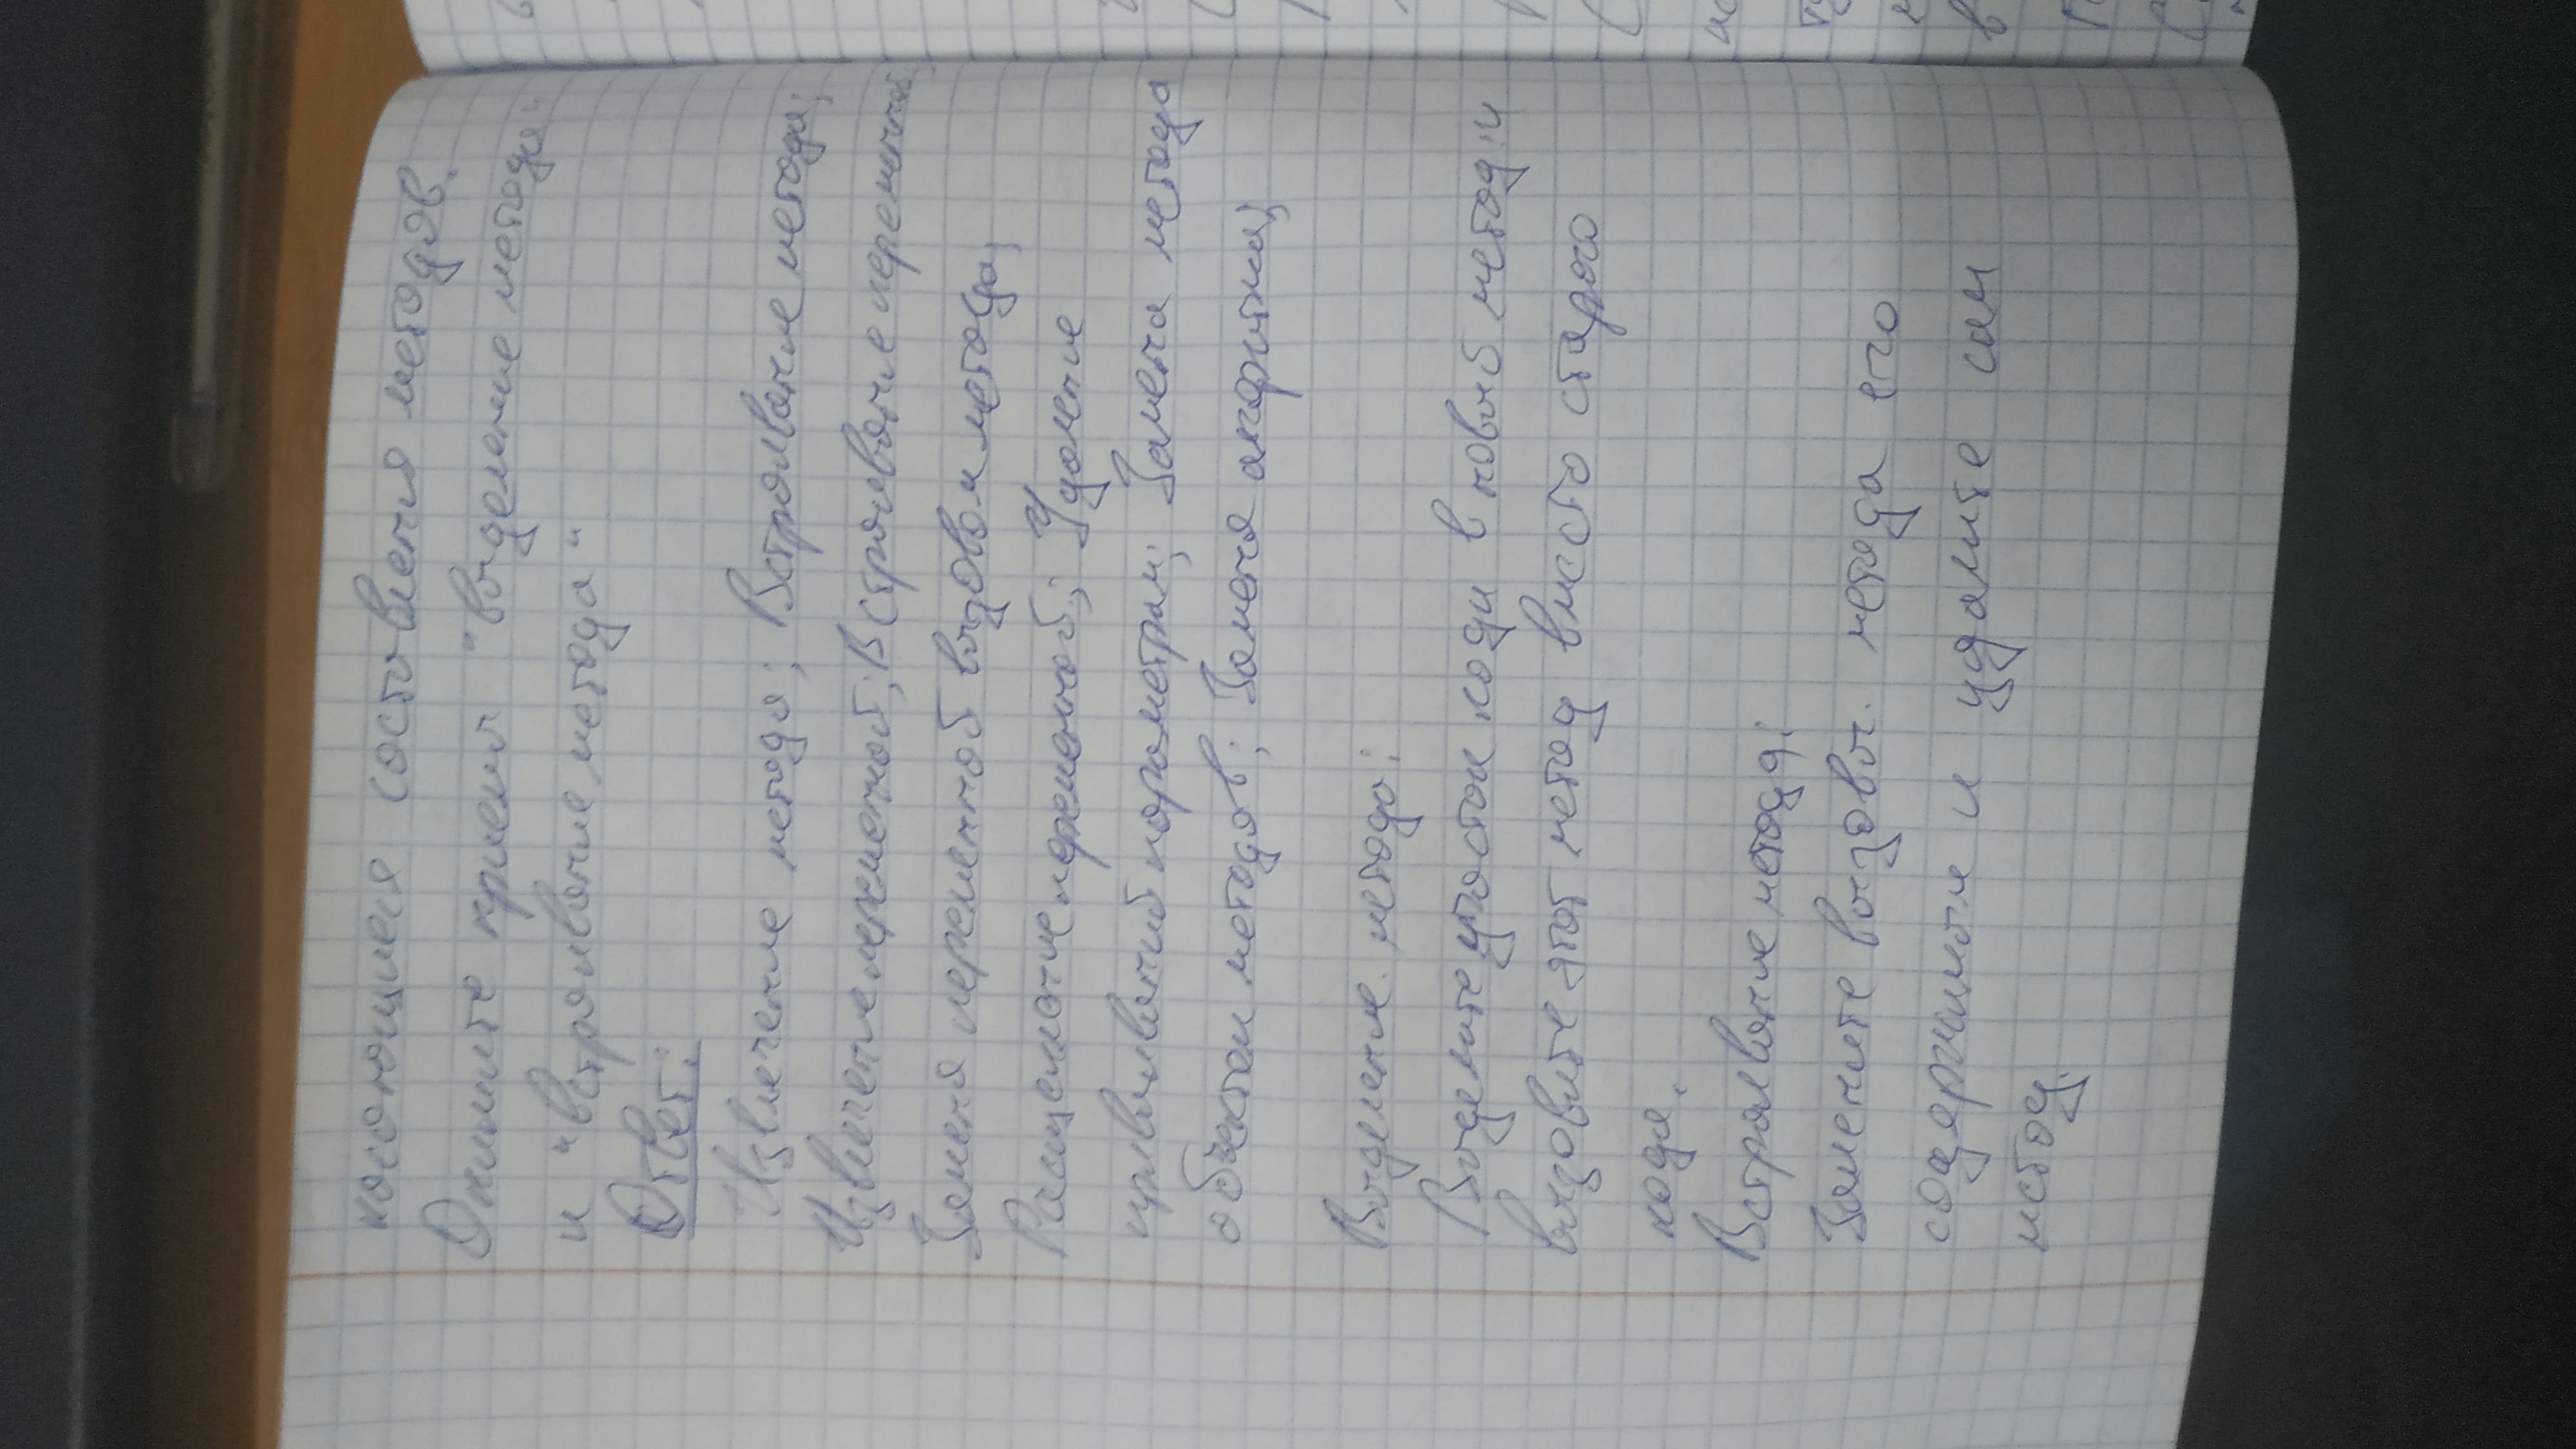 касающиеся составления методов.
Опишите приемы "выделение метода"
и "встраивание метода"
Ответ:
Извлечение метода; Встраивание метода;
Извлечение переменной; Встраивание переменной;
Замена переменной вызовом метода;
Расщепление переменной; Удаление
присваиваний параметрам; Замена метода
объектом методов; Замена алгоритма;
Выделение метода:
Выделите участок кода в новый метод и
вызовите этот метод вместо старого
кода.
Встраивание метода:
Замените вызовы метода его
содержимым и удалите сам
метод.